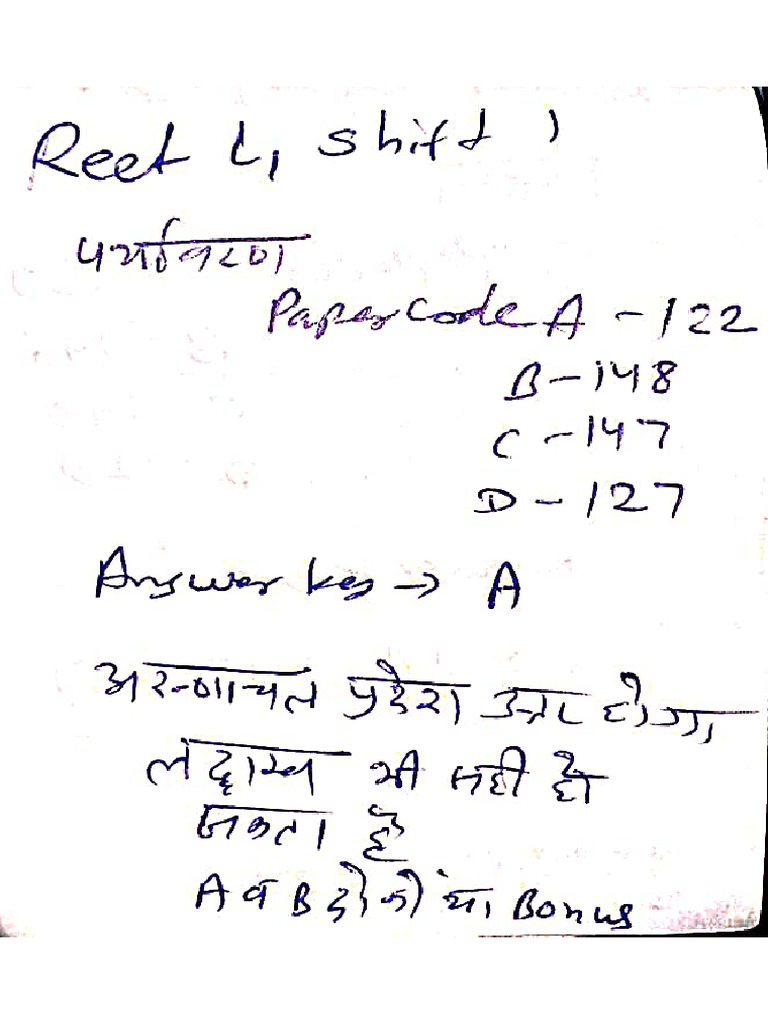 Reet L1 shift 1
पर्यावरण
Paper code A - 122
B - 148
C - 147
D - 127
Answer key → A
अरूणाचल प्रदेश उत्तर होगा
लद्दाख भी सही हो
सकता है
A व B दोनों या Bonus